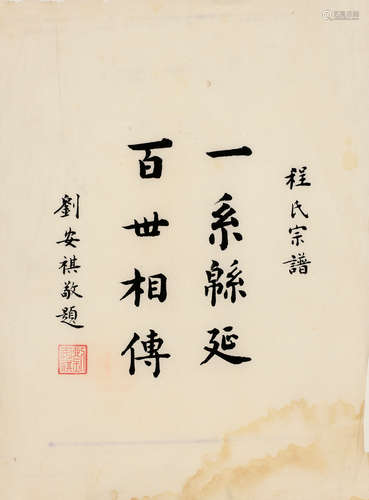 程氏宗譜
一系緜延
百世相傳
劉安祺敬題